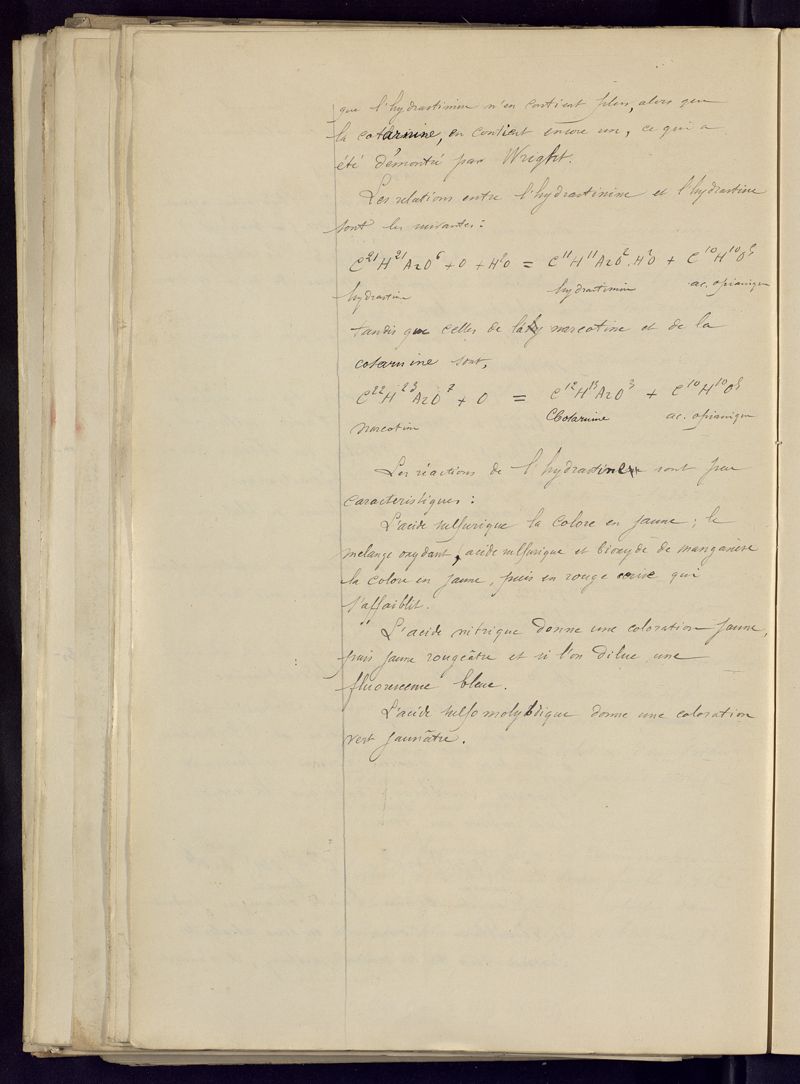 que l'hydrastinine n'en contient plus, alors que
la cotarnine, en contient encore un, ce qui a
été démontré par Wright.
Les relations entre l'hydrastinine et l'hydrastine
sont les suivantes :
C²¹H²¹AzO⁶ + O + H²O = C¹¹H¹¹AzO².H²O + C¹⁰H¹⁰O⁵
hydrastine hydrastinine ac. opianique
tandis que celles de la narcotine et de la
cotarnine sont,
C²²H²³AzO⁷ + O = C¹²H¹³AzO³ + C¹⁰H¹⁰O⁵
Narcotine Cotarnine ac. opianique
Les réactions de l'hydrastine sont peu
caractéristiques :
L'acide sulfurique la colore en jaune ; le
mélange oxydant, acide sulfurique et bioxyde de manganèse
la colore en jaune, puis en rouge cerise qui
s'affaiblit.
L'acide nitrique donne une coloration jaune,
puis jaune rougeâtre et si l'on dilue une
fluorescence bleue.
L'acide sulfomolybdique donne une coloration
vert jaunâtre.